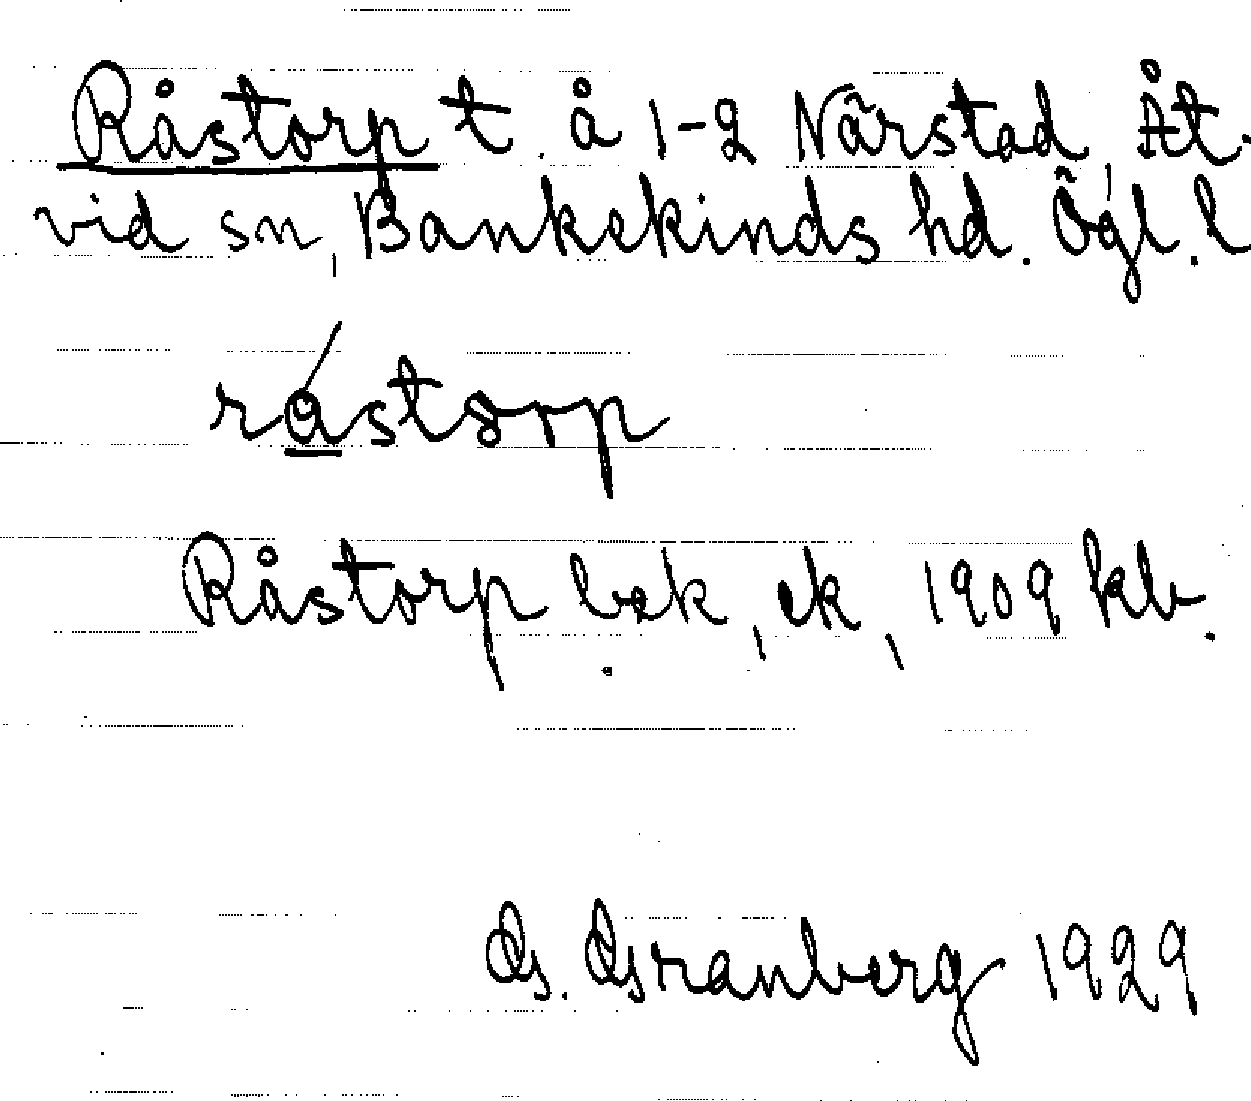 Råstorp t. å 1-2 Närstad, Åt-
vid sn, Bankekinds hd. Ögl. l
råstorp
Råstorp bek, ek, 1909 kb.
G. Granberg 1929